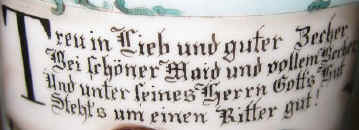 Treu in Lieb und guter Zecher
Bei schöner Maid und vollem Becher
Und unter seines Herrn Gott's Hut
Steht's um einen Ritter gut!